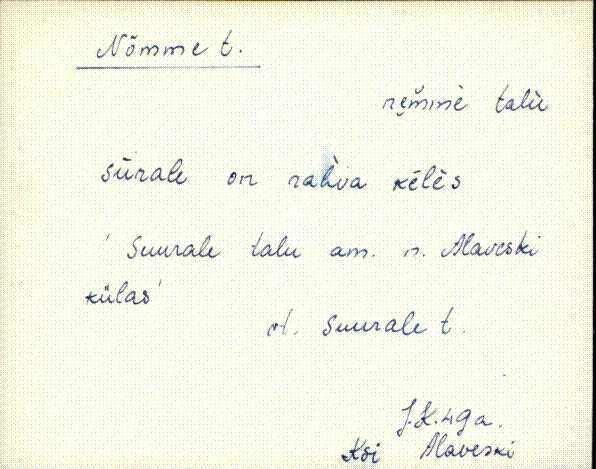 Nõmme t.
ne̮m̆mè talù
sūrale on rahva kēlès
'Suurale talu am. n. Alaveski
külas'
vt. Suurale t.
J.K. 49a.
Ksi Alaveski